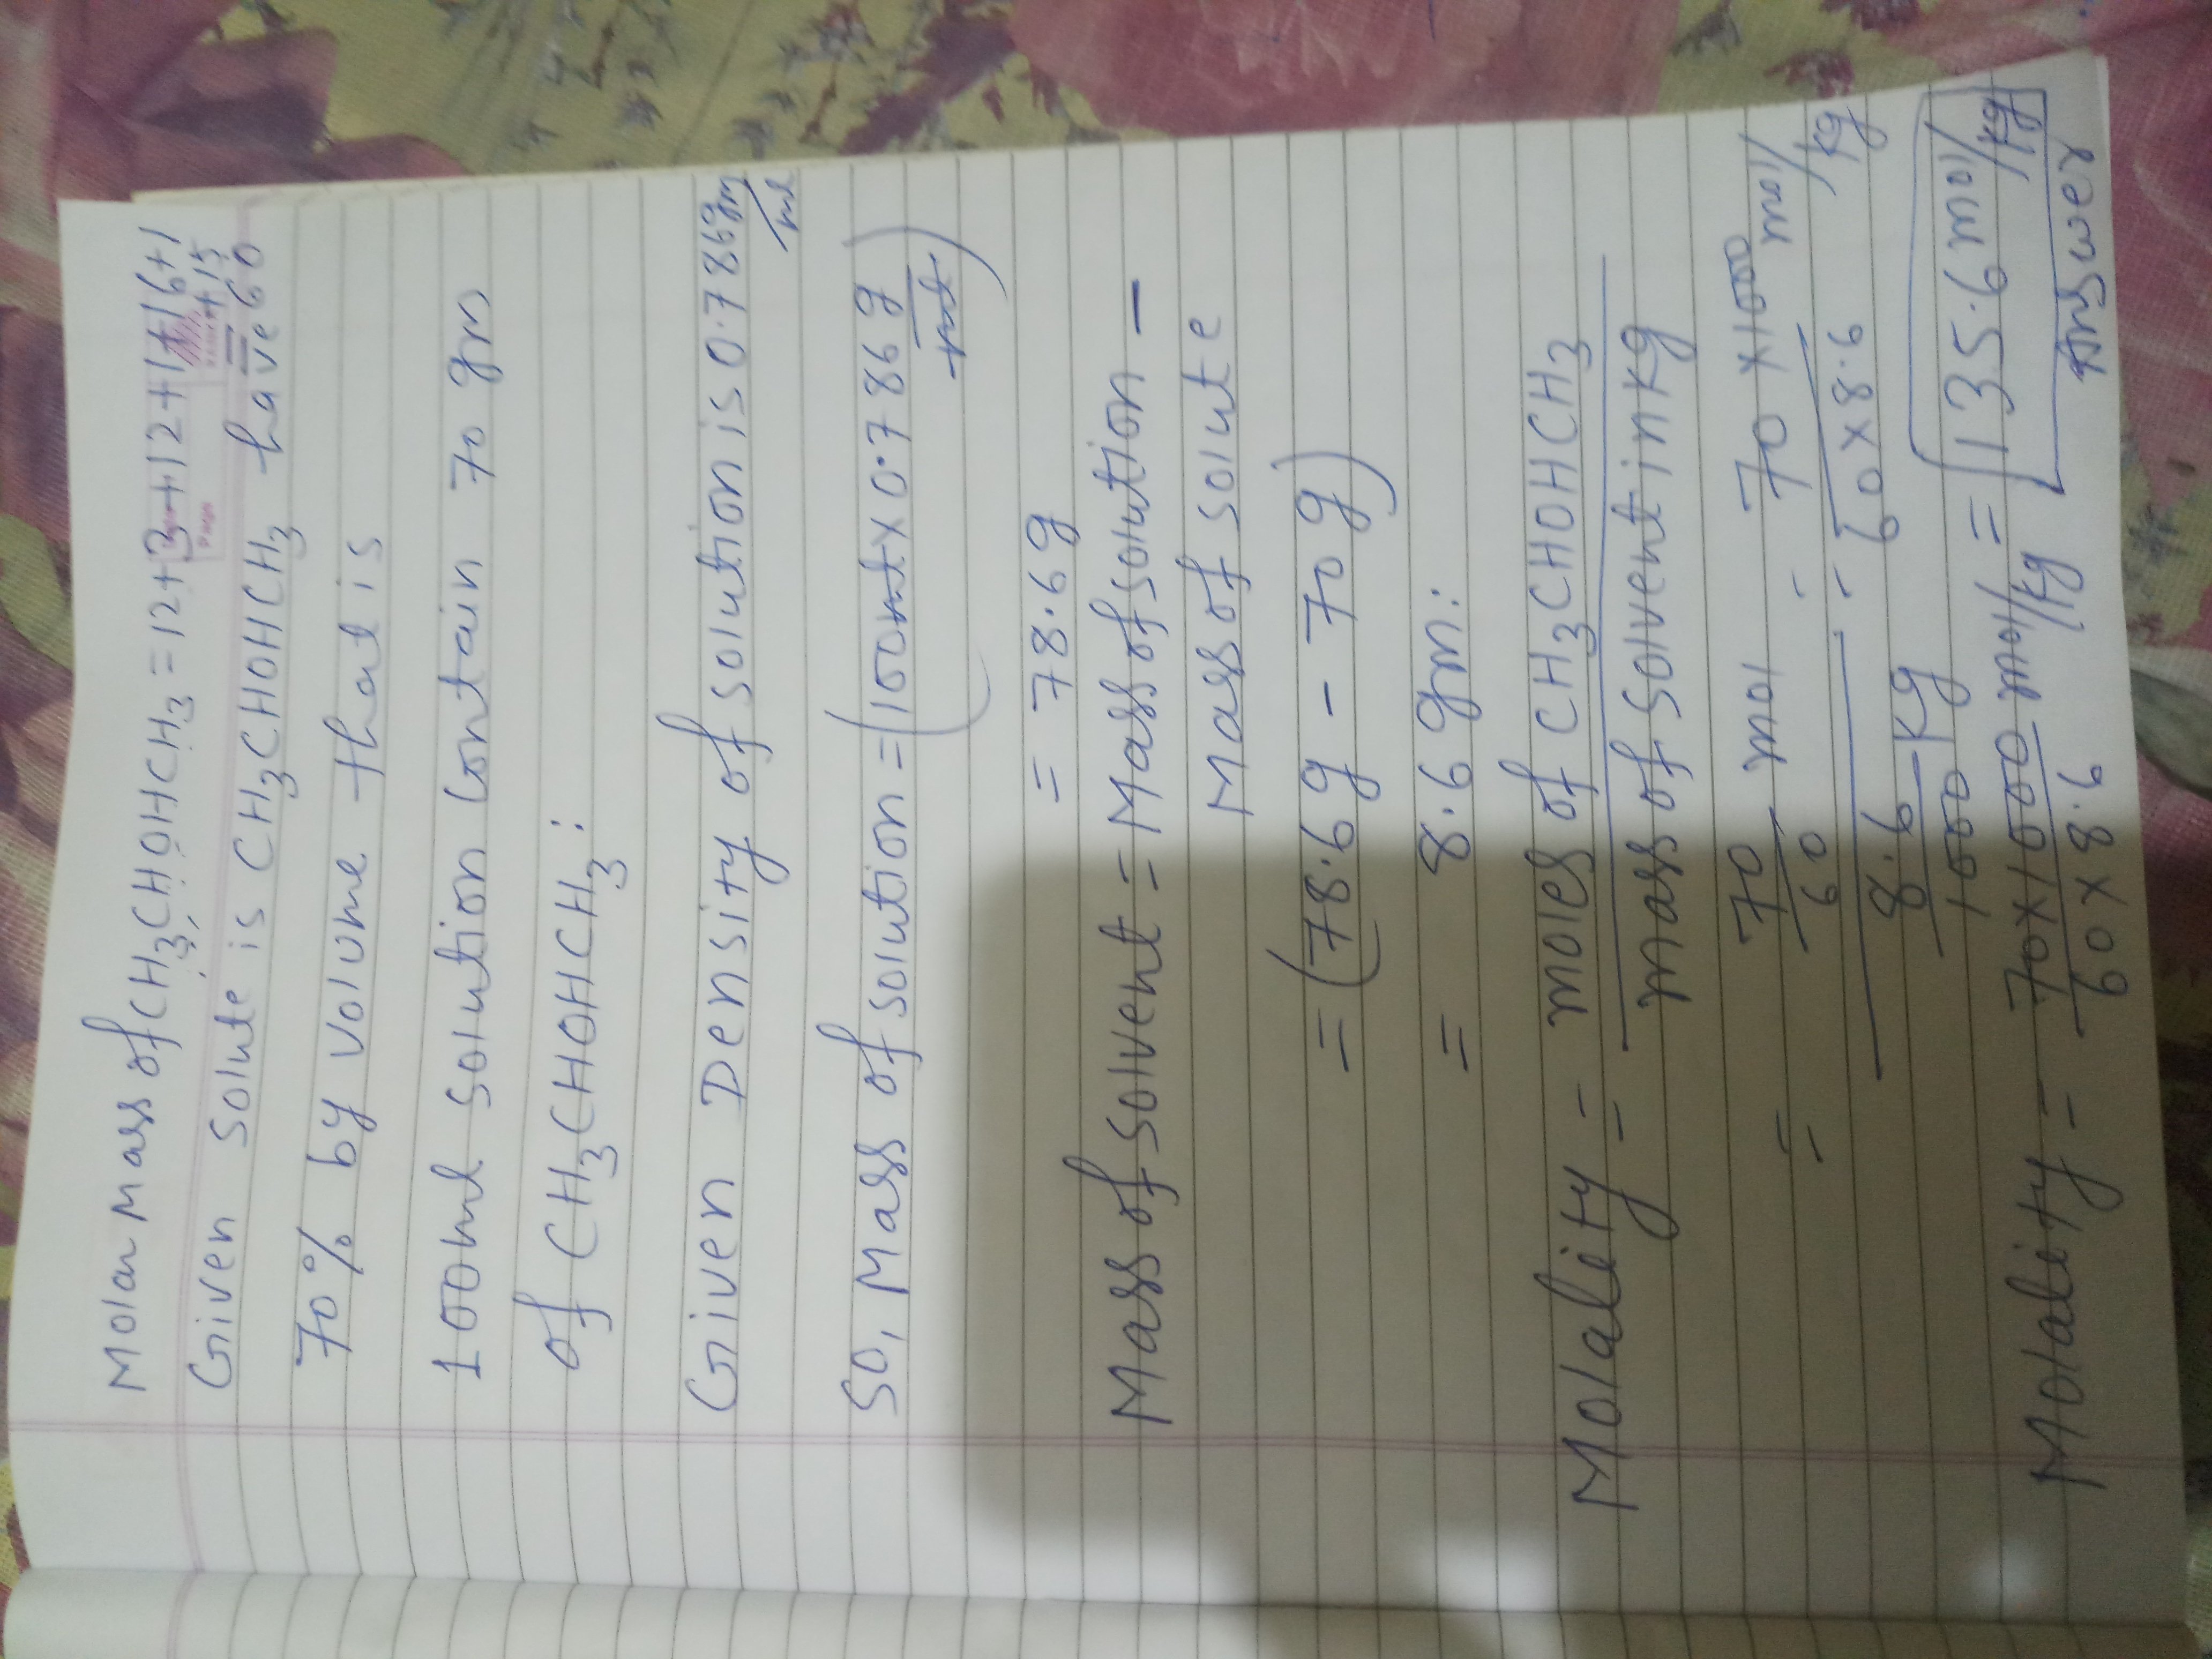 Molar Mass of CH3CHOHCH3 = 12+3+12+1+16+1
+15
Given Solute is CH3CHOHCH3 have = 60
70% by volume that is
100ml solution Contain 70 gm
of CH3CHOHCH3:
Given Density of solution is 0.786 gm/ml
So, Mass of solution = (100ml × 0.786 g/ml)
= 78.6 g
Mass of solvent = Mass of solution -
Mass of solute
= (78.6 g - 70 g)
= 8.6 gm:
Molality = moles of CH3CHOHCH3 / mass of solvent in kg
= 70/60 mol / 8.6/1000 kg = 70 × 1000 / 60 × 8.6 mol/kg
Molality = 70 × 1000 / 60 × 8.6 mol/kg = 135.6 mol/kg
Answer